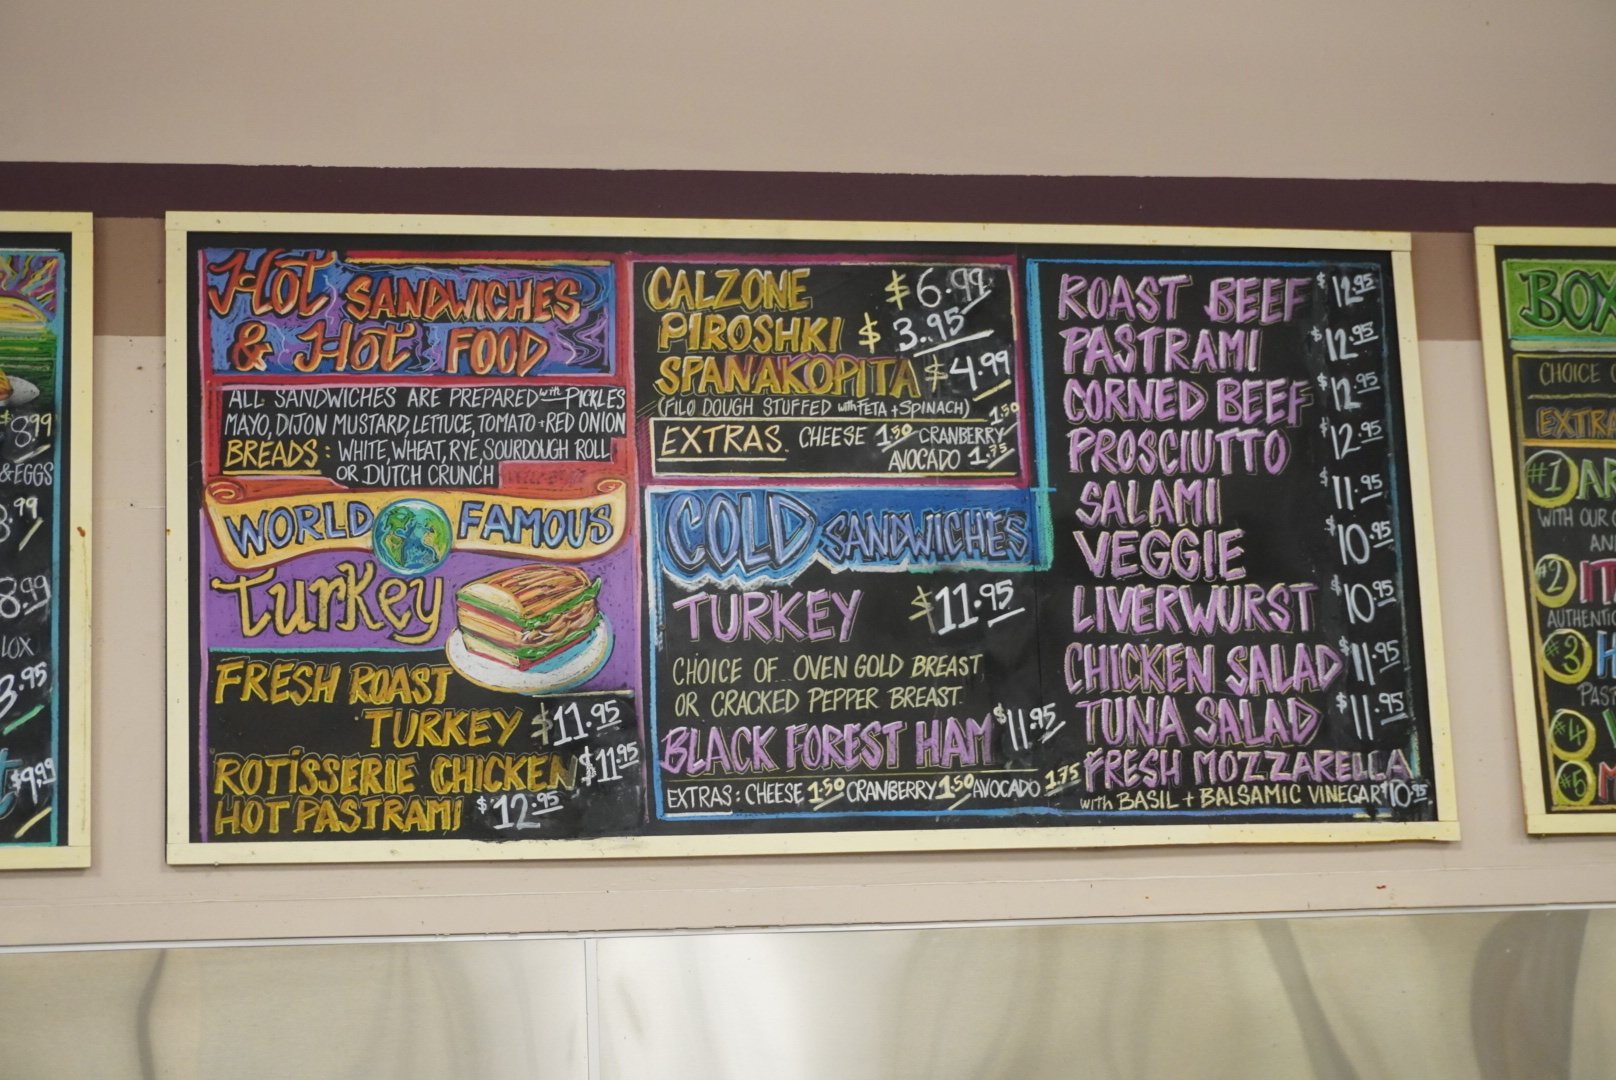 $8.99
& EGGS
8.99
8.99
LOX
3.95
$9.99
Hot SANDWICHES
& Hot FOOD
ALL SANDWICHES ARE PREPARED with PICKLES
MAYO, DIJON MUSTARD, LETTUCE, TOMATO + RED ONION
BREADS: WHITE, WHEAT, RYE, SOURDOUGH ROLL
OR DUTCH CRUNCH
WORLD FAMOUS
TurKey
FRESH ROAST
TURKEY $11.95
ROTISSERIE CHICKEN $11.95
HOT PASTRAMI $12.95
CALZONE $6.99
PIROSHKI $3.95
SPANAKOPITA $4.99
(FILO DOUGH STUFFED with FETA + SPINACH)
EXTRAS. CHEESE 1.50 CRANBERRY 1.50
AVOCADO 1.75
COLD SANDWICHES
TURKEY $11.95
CHOICE OF... OVEN GOLD BREAST,
OR CRACKED PEPPER BREAST.
BLACK FOREST HAM $11.95
EXTRAS: CHEESE 1.50 CRANBERRY 1.50 AVOCADO 1.75
ROAST BEEF $12.95
PASTRAMI $12.95
CORNED BEEF $12.95
PROSCIUTTO $12.95
SALAMI $11.95
VEGGIE $10.95
LIVERWURST $10.95
CHICKEN SALAD $11.95
TUNA SALAD $11.95
FRESH MOZZARELLA
with BASIL + BALSAMIC VINEGAR $10.95
BOX
CHOICE
EXTRA
#1 AR
WITH OUR
AN
#2 IT
AUTHENTIC
#3 H
PAST
#4
#5 M